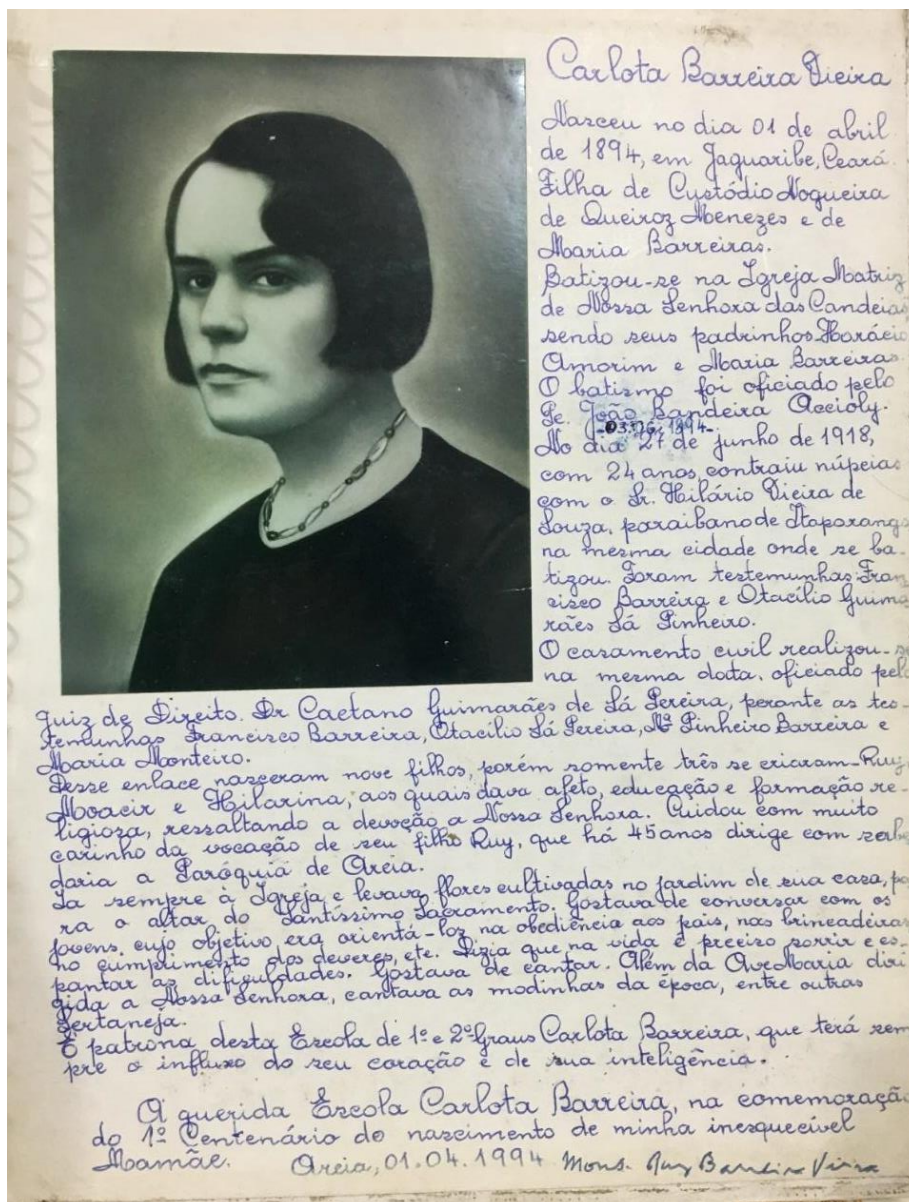 Carlota Barreira Vieira
Nasceu no dia 01 de abril
de 1894, em Jaguaribe, Ceará.
Filha de Custódio Nogueira
de Queiroz Menezes e de
Maria Barreiras.
Batizou-se na Igreja Matriz
de Nossa Senhora das Candeias
sendo seus padrinhos Horácio
Amorim e Maria Barreiras.
O batismo foi oficiado pelo
Pe. João Bandeira Accioly.
No dia 27 de junho de 1918,
com 24 anos, contraiu núpcias
com o Sr. Hilário Vieira de
Souza, paraibano de Itaporanga
na mesma cidade onde se ba-
tizou. Foram testemunhas: Fran
cisco Barreira e Otacílio Guima
rães Sá Pinheiro.
O casamento civil realizou-se
na mesma data, oficiado pelo
Juiz de Direito. Dr Caetano Guimarães de Sá Pereira, perante as tes-
temunhas Francisco Barreira, Otacílio Sá Pereira, Mª Pinheiro Barreira e
Maria Monteiro.
Desse enlace nasceram nove filhos, porém somente três se criaram-Ruy,
Moacir e Hilarina, aos quais dava afeto, educação e formação re-
ligiosa, ressaltando a devoção a Nossa Senhora. Cuidou com muito
carinho da vocação de seu filho Ruy, que há 45 anos dirige com sabe
doria a Paróquia de Areia.
Ia sempre à Igreja e levava flores cultivadas no jardim de sua casa, pa
ra o altar do Santíssimo Sacramento. Gostava de conversar com os
jovens, cujo objetivo era orientá-los na obediência aos pais, nas brincadeiras
no cumprimento dos deveres, etc. Dizia que na vida é preciso sorrir e es-
pantar as dificuldades. Gostava de cantar. Além da Ave Maria diri
gida a Nossa Senhora, cantava as modinhas da época, entre outras
Sertaneja.
É patrona desta Escola de 1º e 2º Graus Carlota Barreira, que terá sem
pre o influxo do seu coração e de sua inteligência.
À querida Escola Carlota Barreira, na comemoração
do 1º Centenário do nascimento de minha inesquecível
Mamãe. Areia, 01.04.1994 Mons. Ruy Barreira Vieira